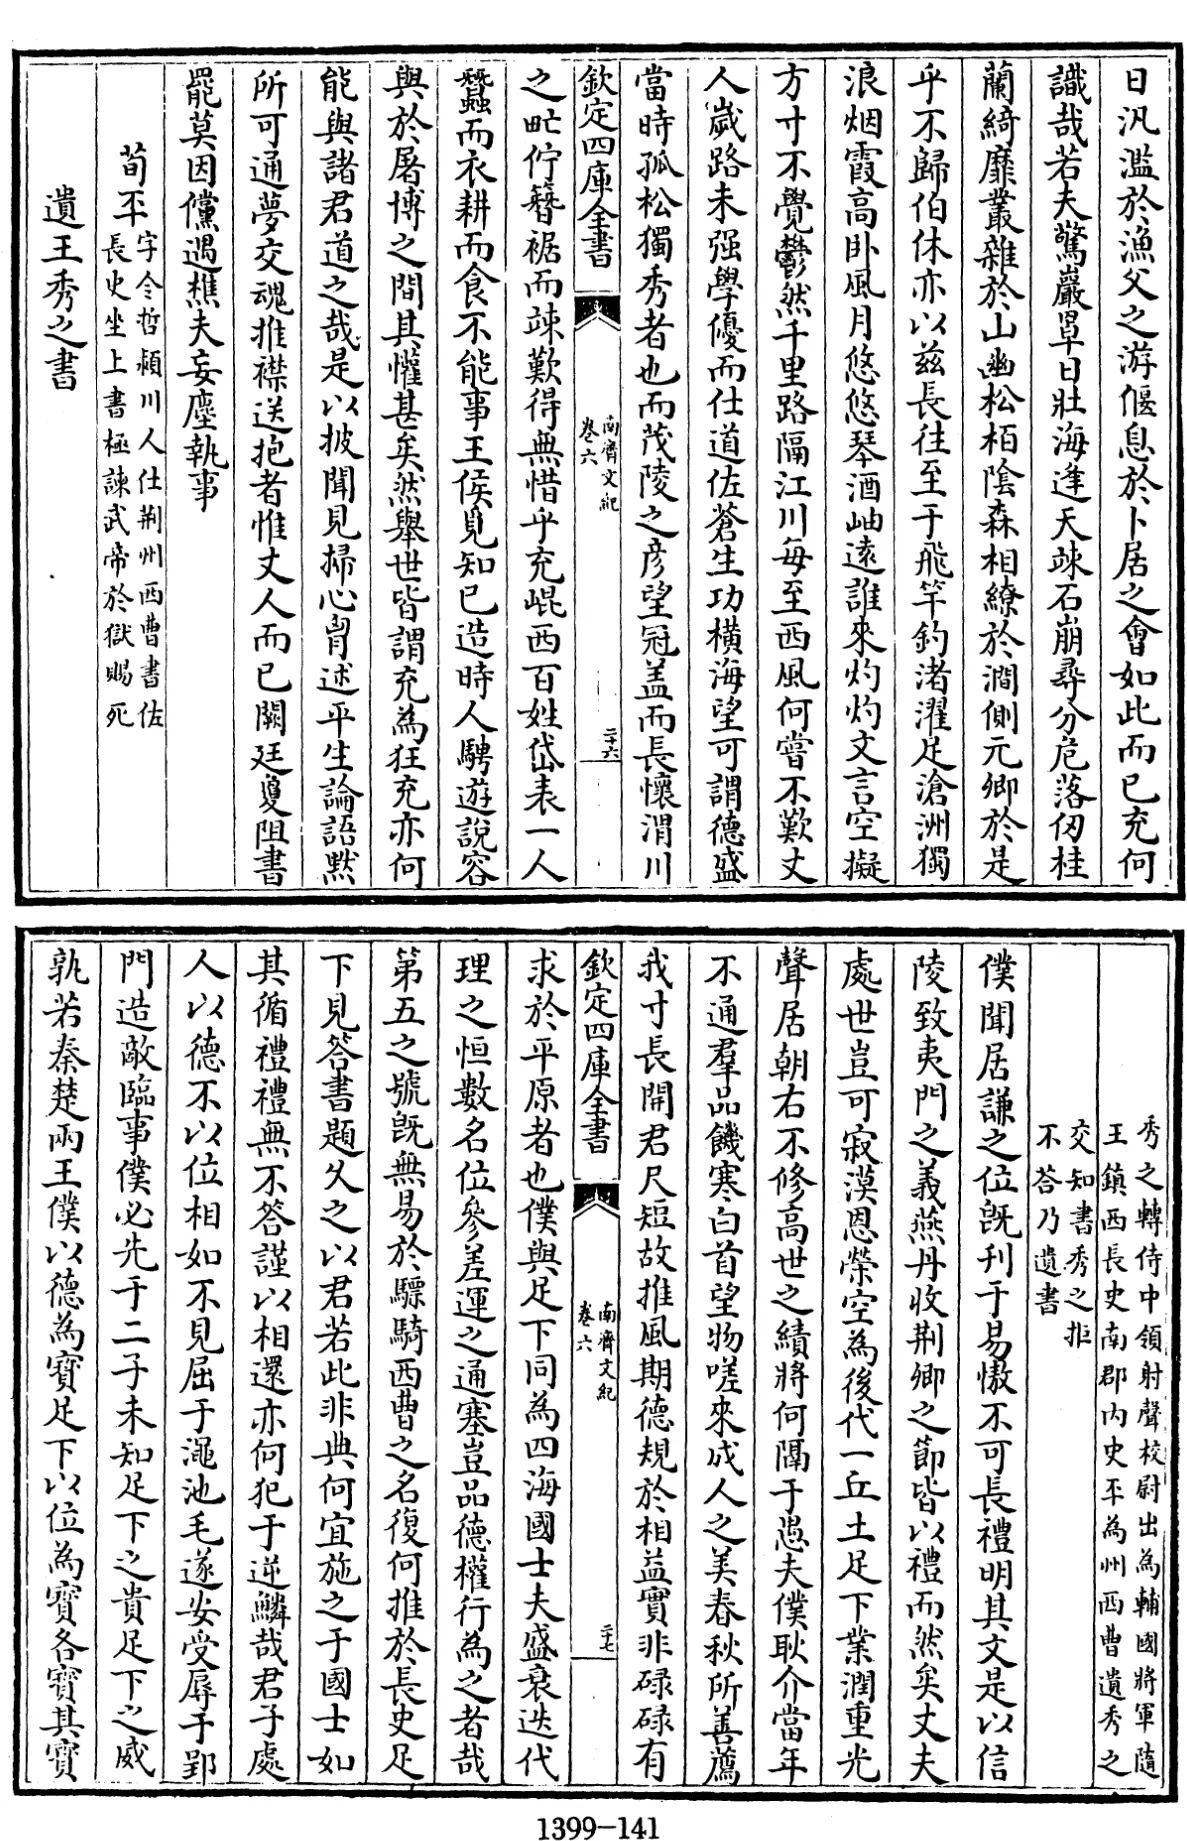 日汎濫於漁父之游偃息於卜居之會如此而已充何
識哉若夫驚巖罩日壯海逢天竦石崩尋分危落仞桂
蘭綺靡叢雜於山幽松栢陰森相繚於澗側元卿於是
乎不歸伯休亦以茲長往至于飛竿釣渚濯足滄洲獨
浪烟霞高卧風月悠悠琴酒岫遠誰來灼灼文言空擬
方寸不覺鬱然千里路隔江川每至西風何嘗不歎丈
人歲路未强學優而仕道佐蒼生功橫海望可謂德盛
當時孤松獨秀者也而茂陵之彦望冠盖而長懷渭川
欽定四庫全書
南齊文紀
卷六
二十六
之甿佇簪裾而竦歎得無惜乎充崐西百姓岱表一人
蠶而衣耕而食不能事王侯覓知已造時人騁遊說容
與於屠博之間其懽甚矣然舉世皆謂充為狂充亦何
能與諸君道之哉是以披聞見掃心胷述平生論語黙
所可通夢交魂推襟送抱者惟丈人而已闕廷敻阻書
罷莫因儻遇樵夫妄塵執事
荀丕
字令哲潁川人仕荆州西曹書佐
長史坐上書極諫武帝於獄賜死
遺王秀之書
秀之轉侍中領射聲校尉出為輔國將軍隨
王鎮西長史南郡内史丕為州西曹遺秀之
交知書秀之拒
不答乃遺書
僕聞居謙之位既刋于易慠不可長禮明其文是以信
陵致夷門之義燕丹收荆卿之節皆以禮而然矣丈夫
處世豈可寂漠恩榮空為後代一丘土足下業潤重光
聲居朝右不修高世之績將何隔于愚夫僕耿介當年
不通羣品饑寒白首望物嗟來成人之美春秋所善薦
我寸長開君尺短故推風期德規於相益實非碌碌有
欽定四庫全書
南齊文紀
卷六
二十七
求於平原者也僕與足下同為四海國士夫盛衰迭代
理之恒數名位參差運之通塞豈品德權行為之者哉
第五之號旣無易於驃騎西曹之名復何推於長史足
下見答書題久之以君若此非典何宜施之于國士如
其循禮禮無不答謹以相還亦何犯于逆鱗哉君子處
人以德不以位相如不見屈于澠池毛遂安受辱于郢
門造敵臨事僕必先于二子未知足下之貴足下之威
孰若秦楚兩王僕以德為寳足下以位為寳各寳其寳
1399-141